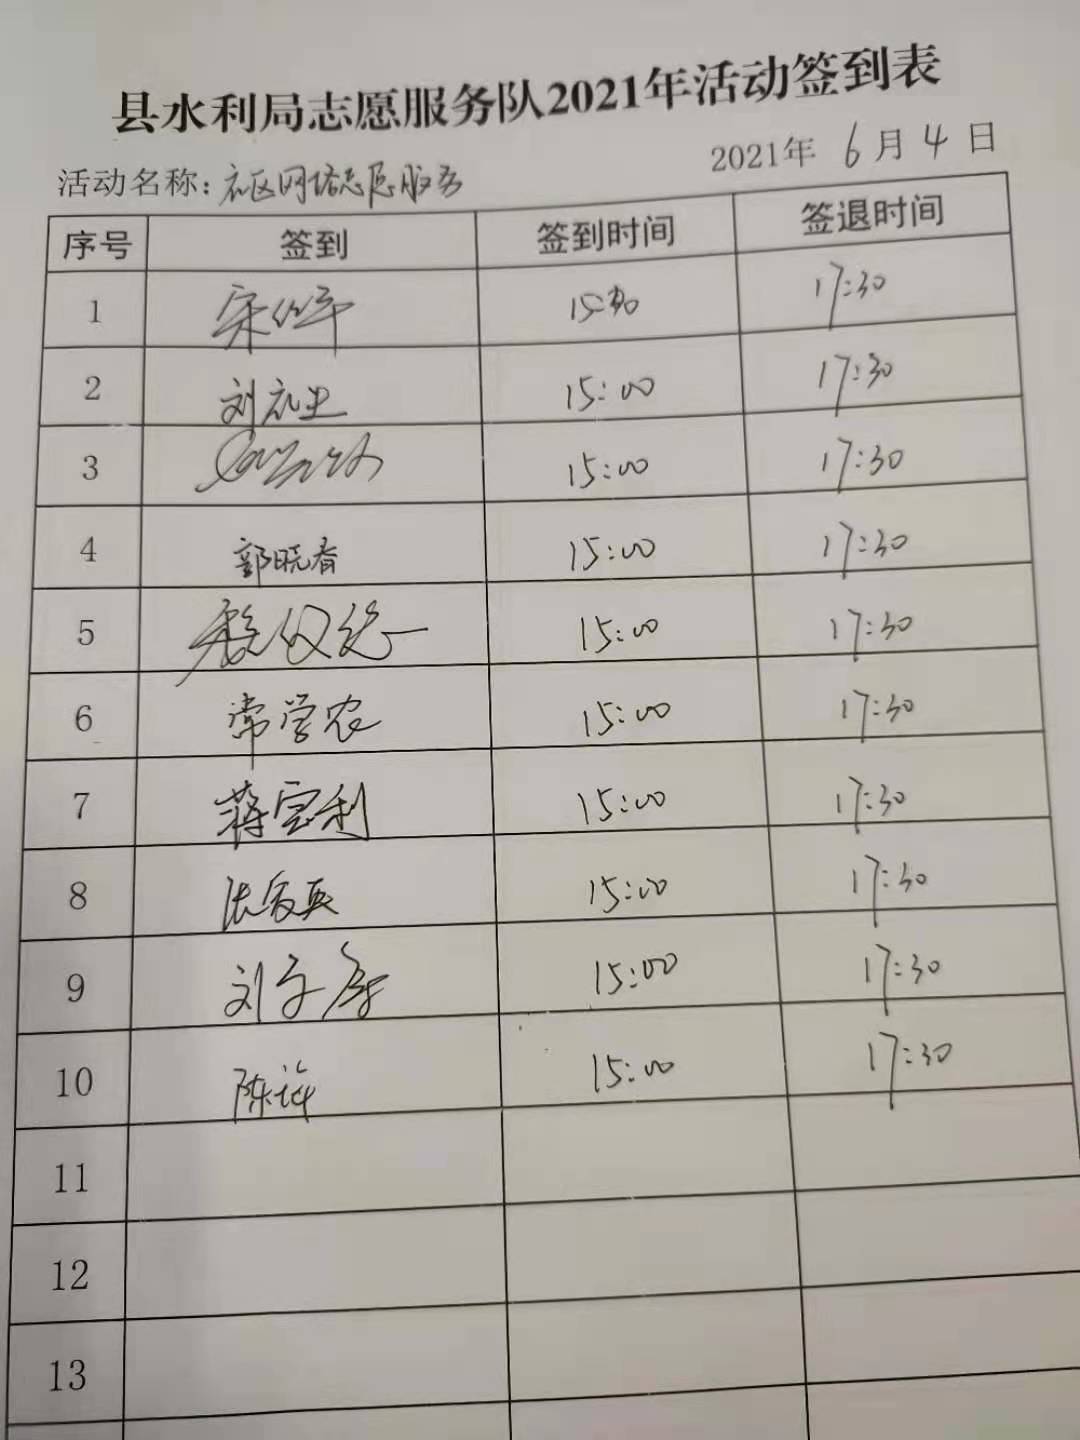 县水利局志愿服务队2021年活动签到表
活动名称：社区网络志愿服务 2021年 6月 4日
序号 签到 签到时间 签退时间
1 17:30
2 刘礼业 15:00 17:30
3 15:00 17:30
4 郭晓春 15:00 17:30
5 15:00 17:30
6 常学农 15:00 17:30
7 蒋宝利 15:00 17:30
8 15:00 17:30
9 15:00 17:30
10 15:00 17:30
11
12
13